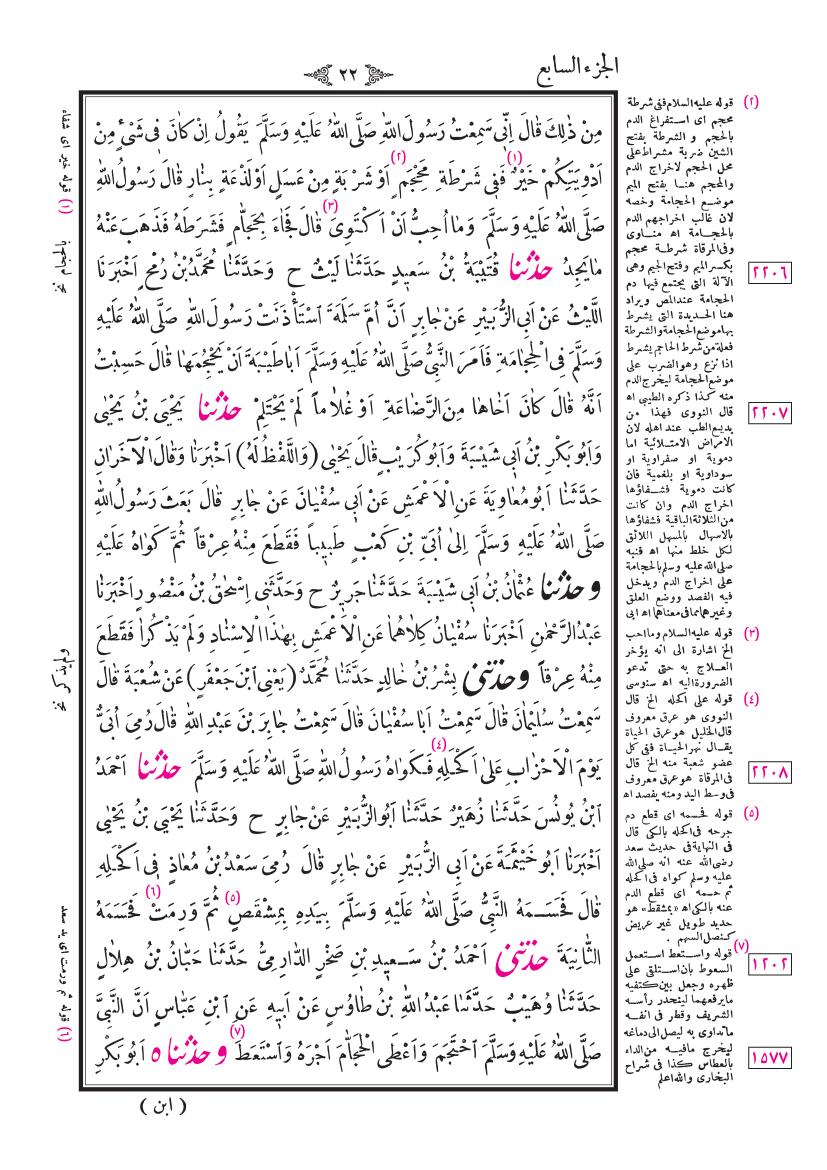 الجزء السابع
٢٢
مِنْ ذٰلِكَ قَالَ اِنِّى سَمِعْتُ رَسُولَ اللهِ صَلَّى اللهُ عَلَيْهِ وَسَلَّمَ يَقُولُ اِنْ كَانَ فِى شَىْءٍ مِنْ
اَدْوِيَتِكُمْ خَيْرٌ (١) فَفِى شَرْطَةِ مَحْجَمٍ (٢) اَوْ شَرْبَةٍ مِنْ عَسَلٍ اَوْ لَذْعَةٍ بِنَارٍ قَالَ رَسُولُ اللهِ
صَلَّى اللهُ عَلَيْهِ وَسَلَّمَ وَمَا اُحِبُّ اَنْ اَكْتَوِىَ (٣) قَالَ فَجَاءَ بِحَجَّامٍ فَشَرَطَهُ فَذَهَبَ عَنْهُ
مَا يَجِدُ حَدَّثَنَا قُتَيْبَةُ بْنُ سَعِيدٍ حَدَّثَنَا لَيْثٌ ح وَحَدَّثَنَا مُحَمَّدُ بْنُ رُمْحٍ اَخْبَرَنَا
اللَّيْثُ عَنْ اَبِى الزُّبَيْرِ عَنْ جَابِرٍ اَنَّ اُمَّ سَلَمَةَ اسْتَأْذَنَتْ رَسُولَ اللهِ صَلَّى اللهُ عَلَيْهِ
وَسَلَّمَ فِى الْحِجَامَةِ فَاَمَرَ النَّبِىُّ صَلَّى اللهُ عَلَيْهِ وَسَلَّمَ اَبَا طَيْبَةَ اَنْ يَحْجُمَهَا قَالَ حَسِبْتُ
اَنَّهُ قَالَ كَانَ اَخَاهَا مِنَ الرَّضَاعَةِ اَوْ غُلَاماً لَمْ يَحْتَلِمْ حَدَّثَنَا يَحْيَى بْنُ يَحْيٰى
وَاَبُو بَكْرِ بْنُ اَبِى شَيْبَةَ وَاَبُو كُرَيْبٍ قَالَ يَحْيٰى (وَاللَّفْظُ لَهُ) اَخْبَرَنَا وَقَالَ الْآخَرَانِ
حَدَّثَنَا اَبُو مُعَاوِيَةَ عَنِ الْاَعْمَشِ عَنْ اَبِى سُفْيَانَ عَنْ جَابِرٍ قَالَ بَعَثَ رَسُولُ اللهِ
صَلَّى اللهُ عَلَيْهِ وَسَلَّمَ اِلٰى اُبَىِّ بْنِ كَعْبٍ طَبِيباً فَقَطَعَ مِنْهُ عِرْقاً ثُمَّ كَوَاهُ عَلَيْهِ
وَحَدَّثَنَا عُثْمَانُ بْنُ اَبِى شَيْبَةَ حَدَّثَنَا جَرِيرٌ ح وَحَدَّثَنِى اِسْحٰقُ بْنُ مَنْصُورٍ اَخْبَرَنَا
عَبْدُ الرَّحْمٰنِ اَخْبَرَنَا سُفْيَانُ كِلَاهُمَا عَنِ الْاَعْمَشِ بِهٰذَا الْاِسْنَادِ وَلَمْ يَذْكُرَا فَقَطَعَ
مِنْهُ عِرْقاً وَحَدَّثَنِى بِشْرُ بْنُ خَالِدٍ حَدَّثَنَا مُحَمَّدٌ (يَعْنِى ابْنَ جَعْفَرٍ) عَنْ شُعْبَةَ قَالَ
سَمِعْتُ سُلَيْمَانَ قَالَ سَمِعْتُ اَبَا سُفْيَانَ قَالَ سَمِعْتُ جَابِرَ بْنَ عَبْدِ اللهِ قَالَ رُمِىَ اُبَىٌّ
يَوْمَ الْاَحْزَابِ عَلٰى اَكْحَلِهِ (٤) فَكَوَاهُ رَسُولُ اللهِ صَلَّى اللهُ عَلَيْهِ وَسَلَّمَ حَدَّثَنَا اَحْمَدُ
ابْنُ يُونُسَ حَدَّثَنَا زُهَيْرٌ حَدَّثَنَا اَبُو الزُّبَيْرِ عَنْ جَابِرٍ ح وَحَدَّثَنَا يَحْيَى بْنُ يَحْيٰى
اَخْبَرَنَا اَبُو خَيْثَمَةَ عَنْ اَبِى الزُّبَيْرِ عَنْ جَابِرٍ قَالَ رُمِىَ سَعْدُ بْنُ مُعَاذٍ فِى اَكْحَلِهِ
قَالَ فَحَسَمَهُ النَّبِىُّ صَلَّى اللهُ عَلَيْهِ وَسَلَّمَ بِيَدِهِ بِمِشْقَصٍ (٥) ثُمَّ وَرِمَتْ (٦) فَحَسَمَهُ
الثَّانِيَةَ حَدَّثَنِى اَحْمَدُ بْنُ سَعِيدِ بْنِ صَخْرٍ الدَّارِمِىُّ حَدَّثَنَا حَبَّانُ بْنُ هِلَالٍ
حَدَّثَنَا وُهَيْبٌ حَدَّثَنَا عَبْدُ اللهِ بْنُ طَاوُسٍ عَنْ اَبِيهِ عَنِ ابْنِ عَبَّاسٍ اَنَّ النَّبِىَّ
صَلَّى اللهُ عَلَيْهِ وَسَلَّمَ احْتَجَمَ وَاَعْطَى الْحَجَّامَ اَجْرَهُ وَاسْتَعَطَ (٧) وَحَدَّثَنَا ٥ اَبُو بَكْرِ
( ابن )
(٢) قوله عليه السلام ففى شرطة
محجم اى استفراغ الدم
بالحجم و الشرطة بفتح
الشين ضربة مشراط على
محل الحجم لاخراج الدم
والمحجم هنا بفتح الميم
موضع الحجامة وخصه
لان غالب اخراجهم الدم
بالحجامة اه مناوى
وفى المرقاة شرطة محجم
بكسر الميم وفتح الجيم وهى
الآلة التى يجتمع فيها دم
الحجامة عند المص ويراد
هنا الحديدة التى يشرط
بها موضع الحجامة والشرطة
فعلة من شرط الحاجم يشرط
اذا نزع وهو الضرب على
موضع الحجامة ليخرج الدم
منه كذا ذكره الطيبى اه
قال النووى فهذا من
بديع الطب عند اهله لان
الامراض الامتلائية اما
دموية او صفراوية او
سوداوية او بلغمية فان
كانت دموية فشفاؤها
اخراج الدم وان كانت
من الثلاثة الباقية فشفاؤها
بالاسهال بالمسهل اللائق
لكل خلط منها اه فنبه
صلى الله عليه وسلم بالحجامة
على اخراج الدم ويدخل
فيه الفصد ووضع العلق
وغيرهما مما فى معناهما اه ابى
(٣) قوله عليه السلام وما احب
الخ اشارة الى انه يؤخر
العلاج به حتى تدعو
الضرورة اليه اه سنوسى
(٤) قوله على اكحله الخ قال
النووى هو عرق معروف
قال الخليل هو عرق الحياة
يقال نهر الحياة ففى كل
عضو شعبة منه الخ قال
فى المرقاة هو عرق معروف
فى وسط اليد ومنه يفصد اه
(٥) قوله فحسمه اى قطع دم
جرحه فى اكحله بالكى قال
فى النهاية فى حديث سعد
رضى الله عنه انه صلى الله
عليه وسلم كواه فى اكحله
ثم حسمه اى قطع الدم
عنه بالكى اه «بمشقص» هو
حديد طويل غير عريض
كنصل السهم .
(٧) قوله واستعط استعمل
السعوط بان استلقى على
ظهره وجعل بين كتفيه
ما يرفعهما لينحدر رأسه
الشريف وقطر فى انفه
ما تداوى به ليصل الى دماغه
ليخرج ما فيه من الداء
بالعطاس كذا فى شراح
البخارى والله اعلم
٢٢٠٦
٢٢٠٧
٢٢٠٨
١٢٠٢
١٥٧٧
(١) قوله خير اى شفاء
(٦) قوله ثم ورمت اى يد سعد